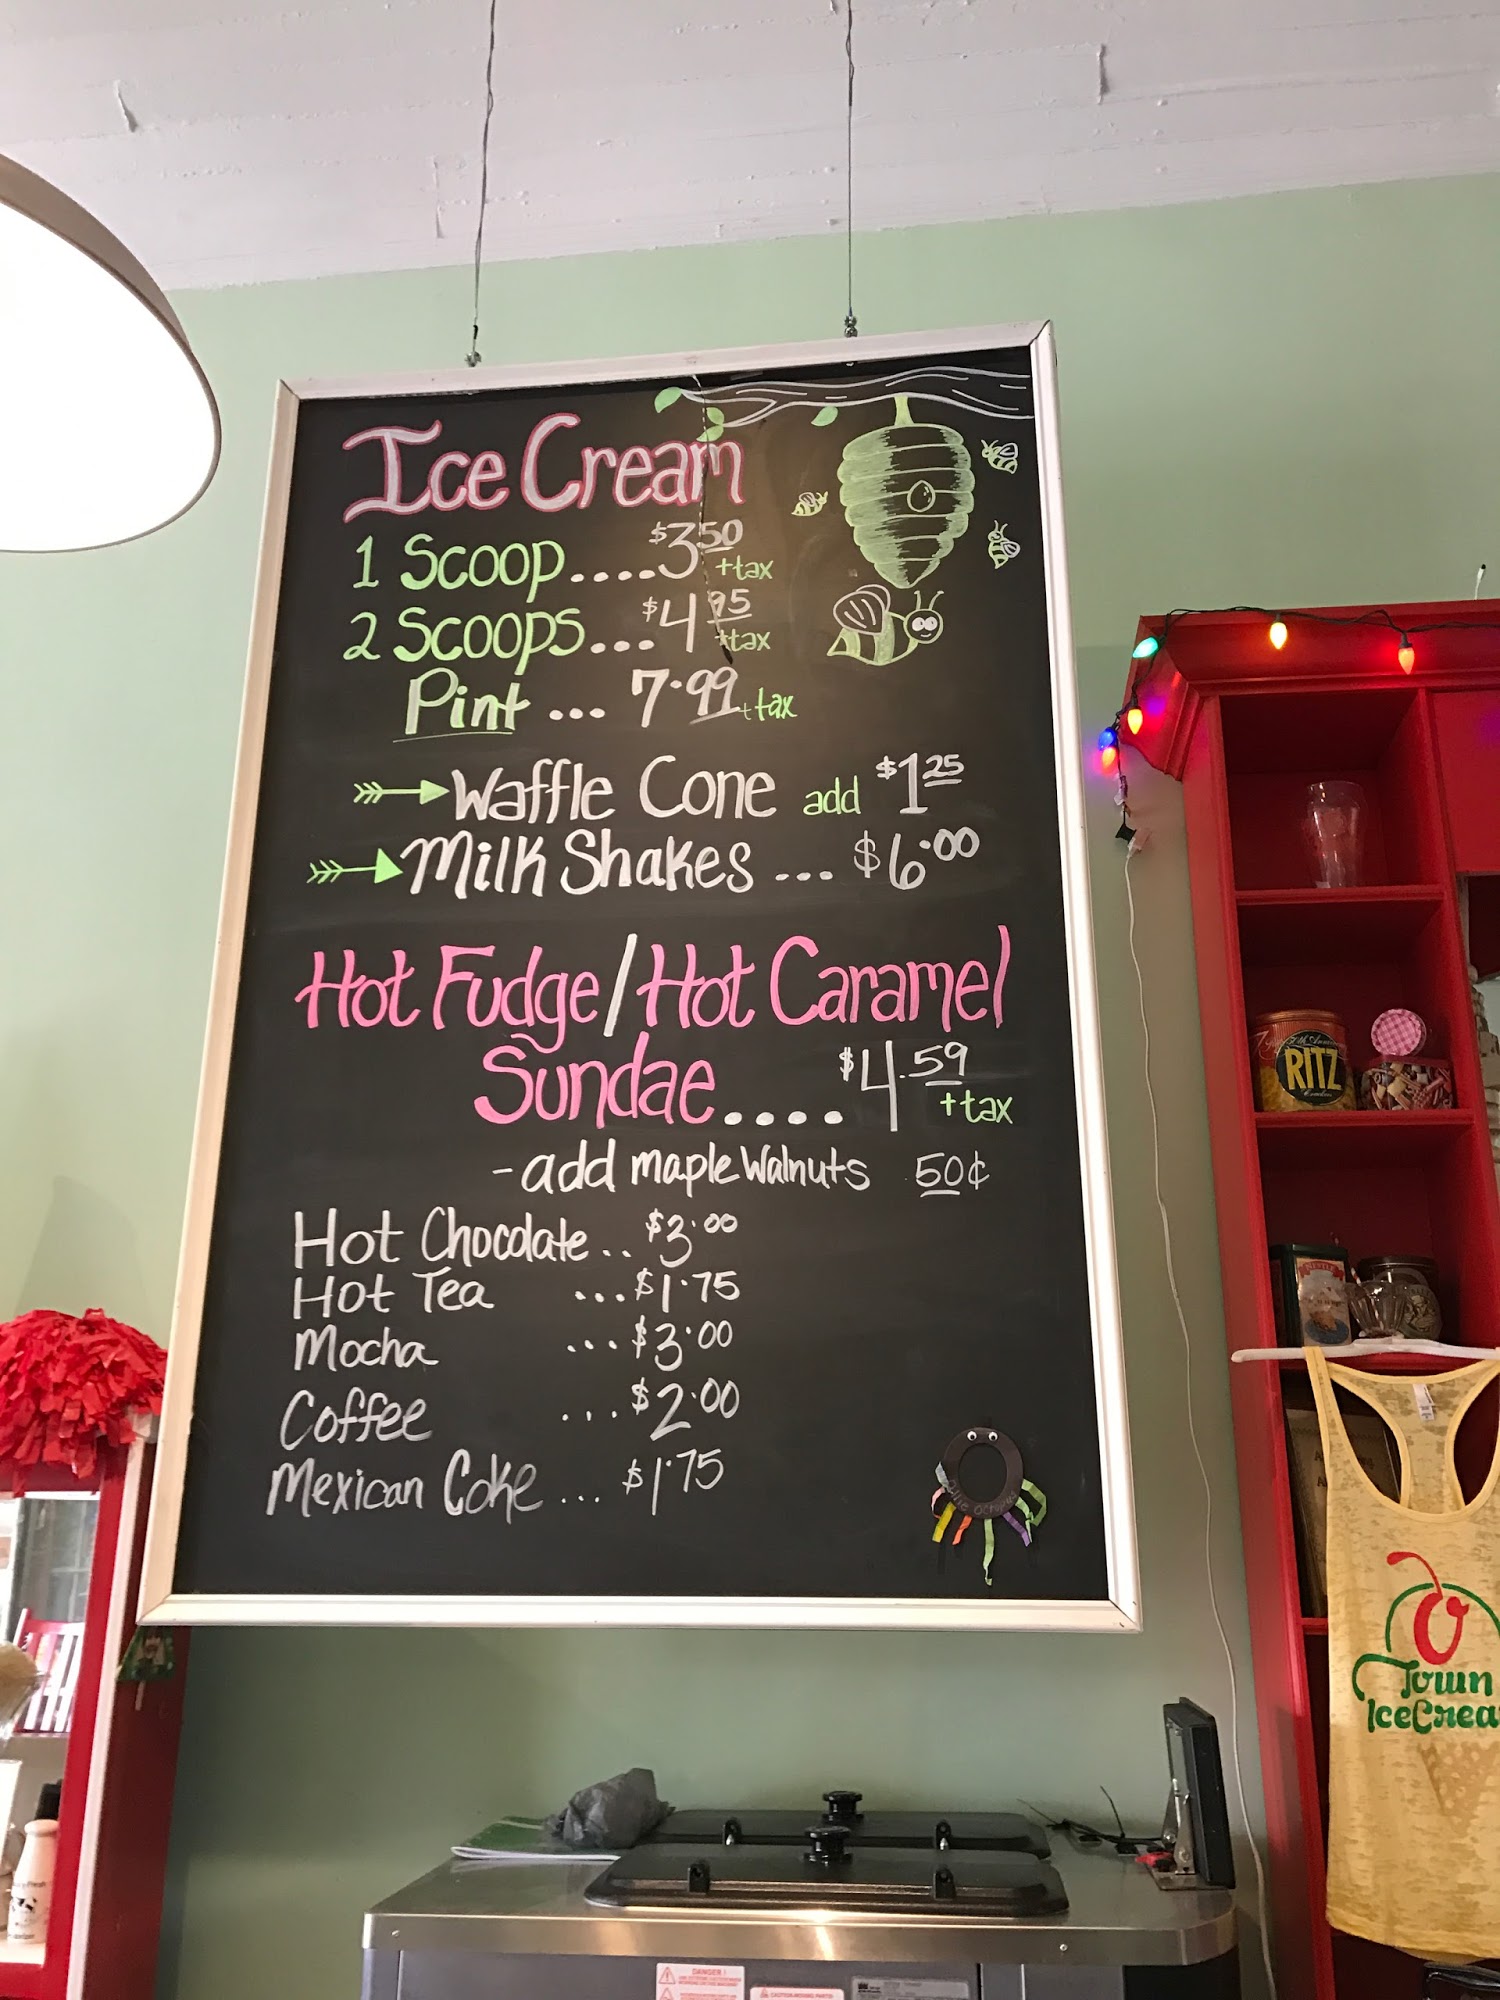 Ice Cream
1 Scoop....$3.50 +tax
2 Scoops...$4.95 +tax
Pint ... 7.99 +tax
Waffle Cone add $1.25
Milk Shakes ... $6.00
Hot Fudge/Hot Caramel
Sundae.... $4.59 +tax
- add maple walnuts 50¢
Hot Chocolate.. $3.00
Hot Tea ...$1.75
Mocha ...$3.00
Coffee ...$2.00
Mexican Coke ... $1.75
RITZ
Crackers
Town
IceCrea
DANGER!